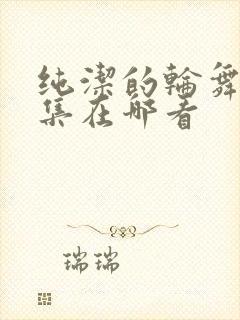 纯潔的輪舞
集在哪看
瑞瑞